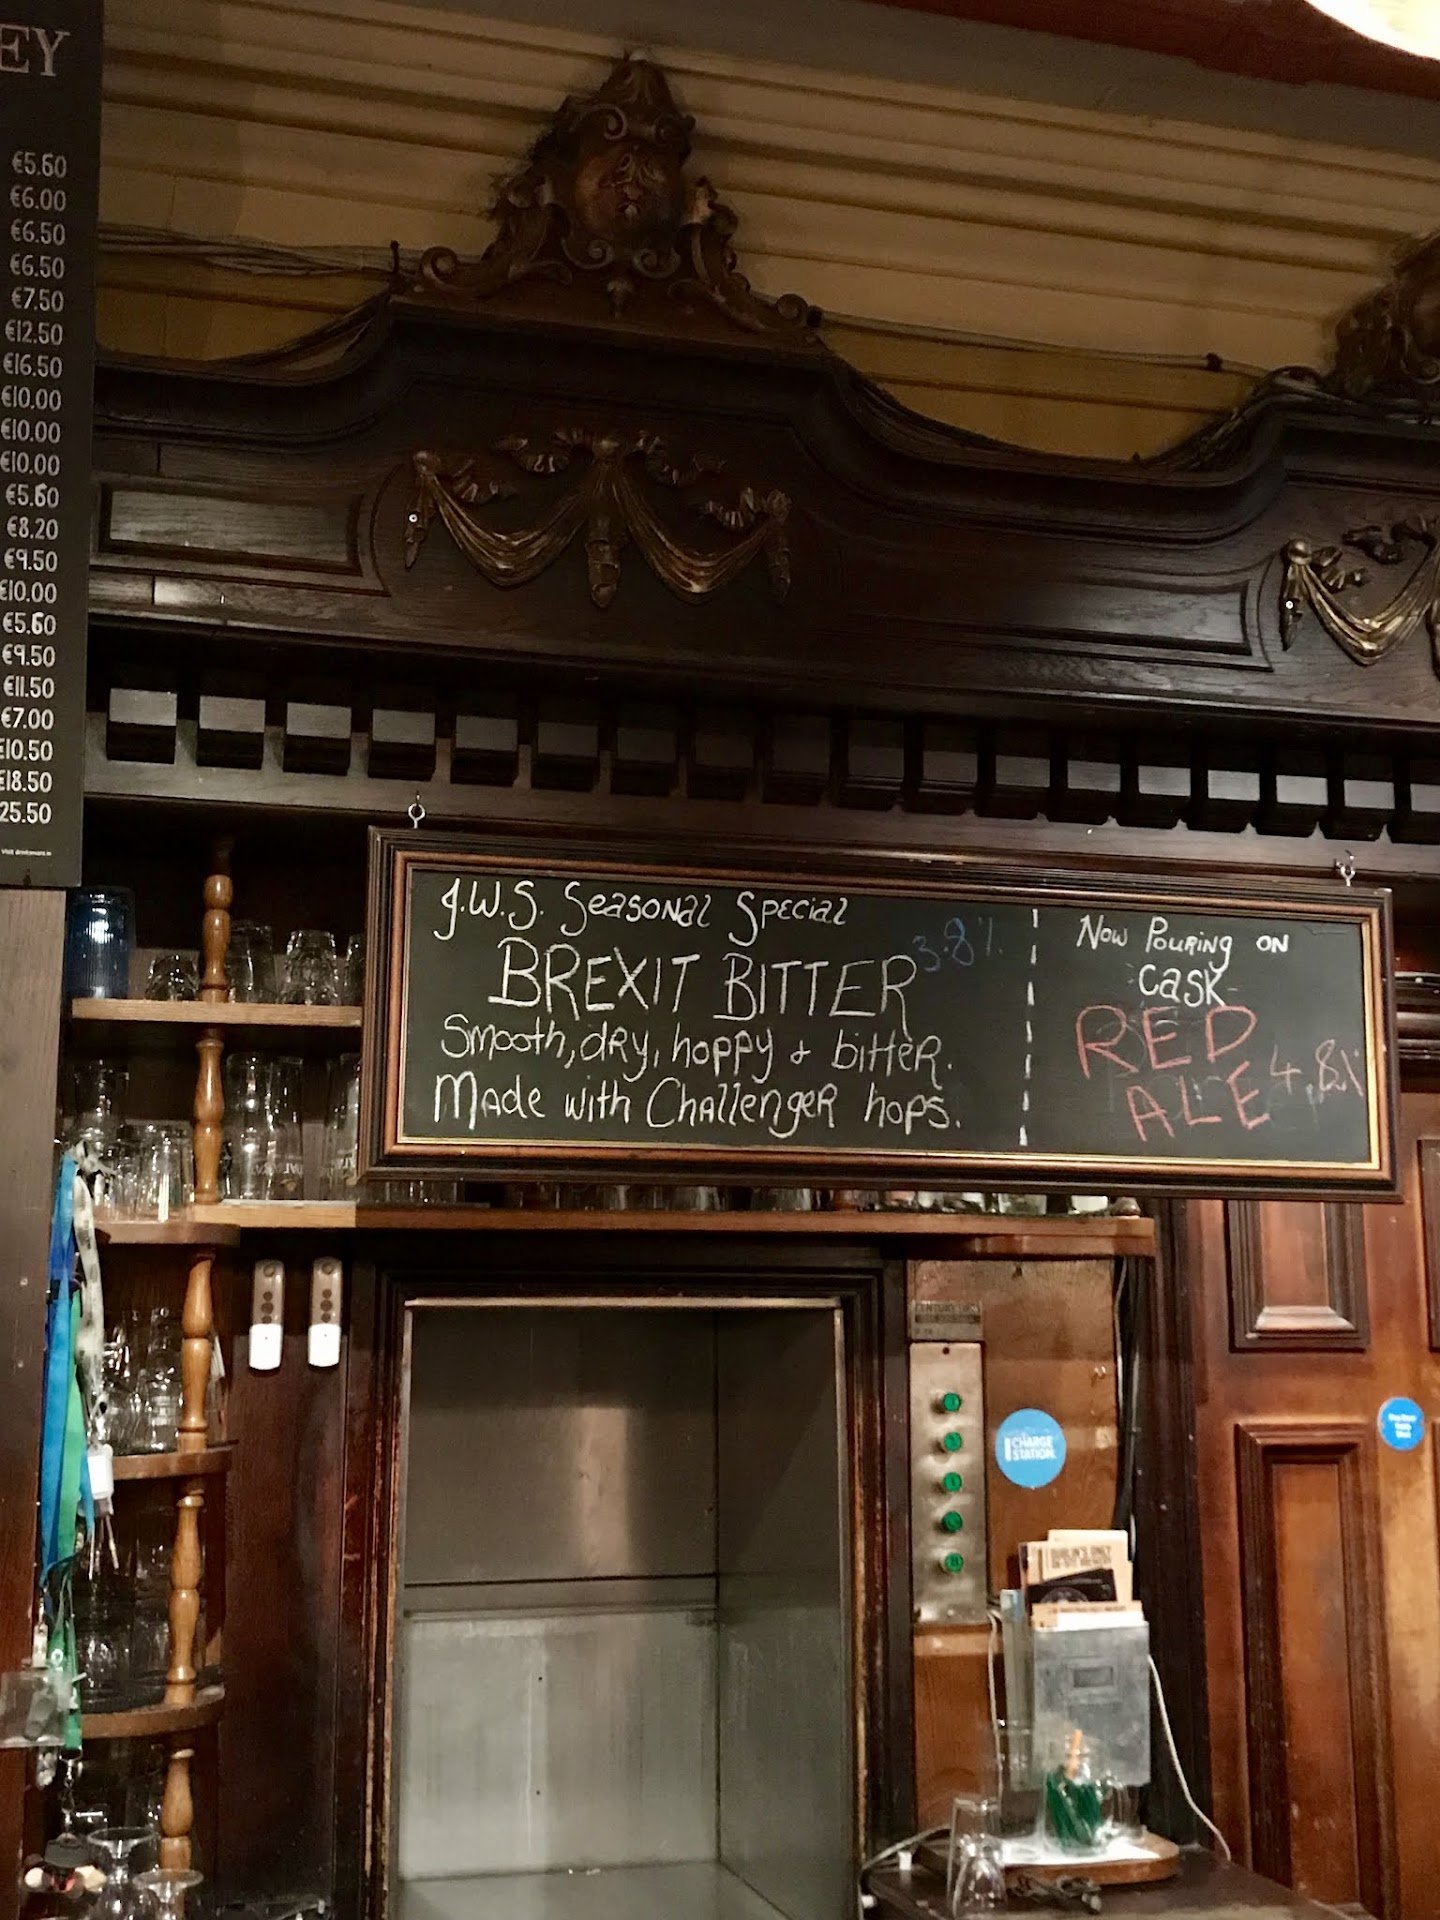 EY
€5.60
€6.00
€6.50
€6.50
€7.50
€12.50
€16.50
€10.00
€10.00
€10.00
€5.60
€8.20
€9.50
€10.00
€5.60
€9.50
€11.50
€7.00
€10.50
€18.50
25.50
Visit drinkaware.ie
J.W.S. Seasonal Special
BREXIT BITTER 3.8%
Smooth, dry, hoppy & bitter.
Made with Challenger hops.
Now Pouring on
Cask
RED
ALE 4.8%
CHARGE
STATION
DUBLIN'S ONLY